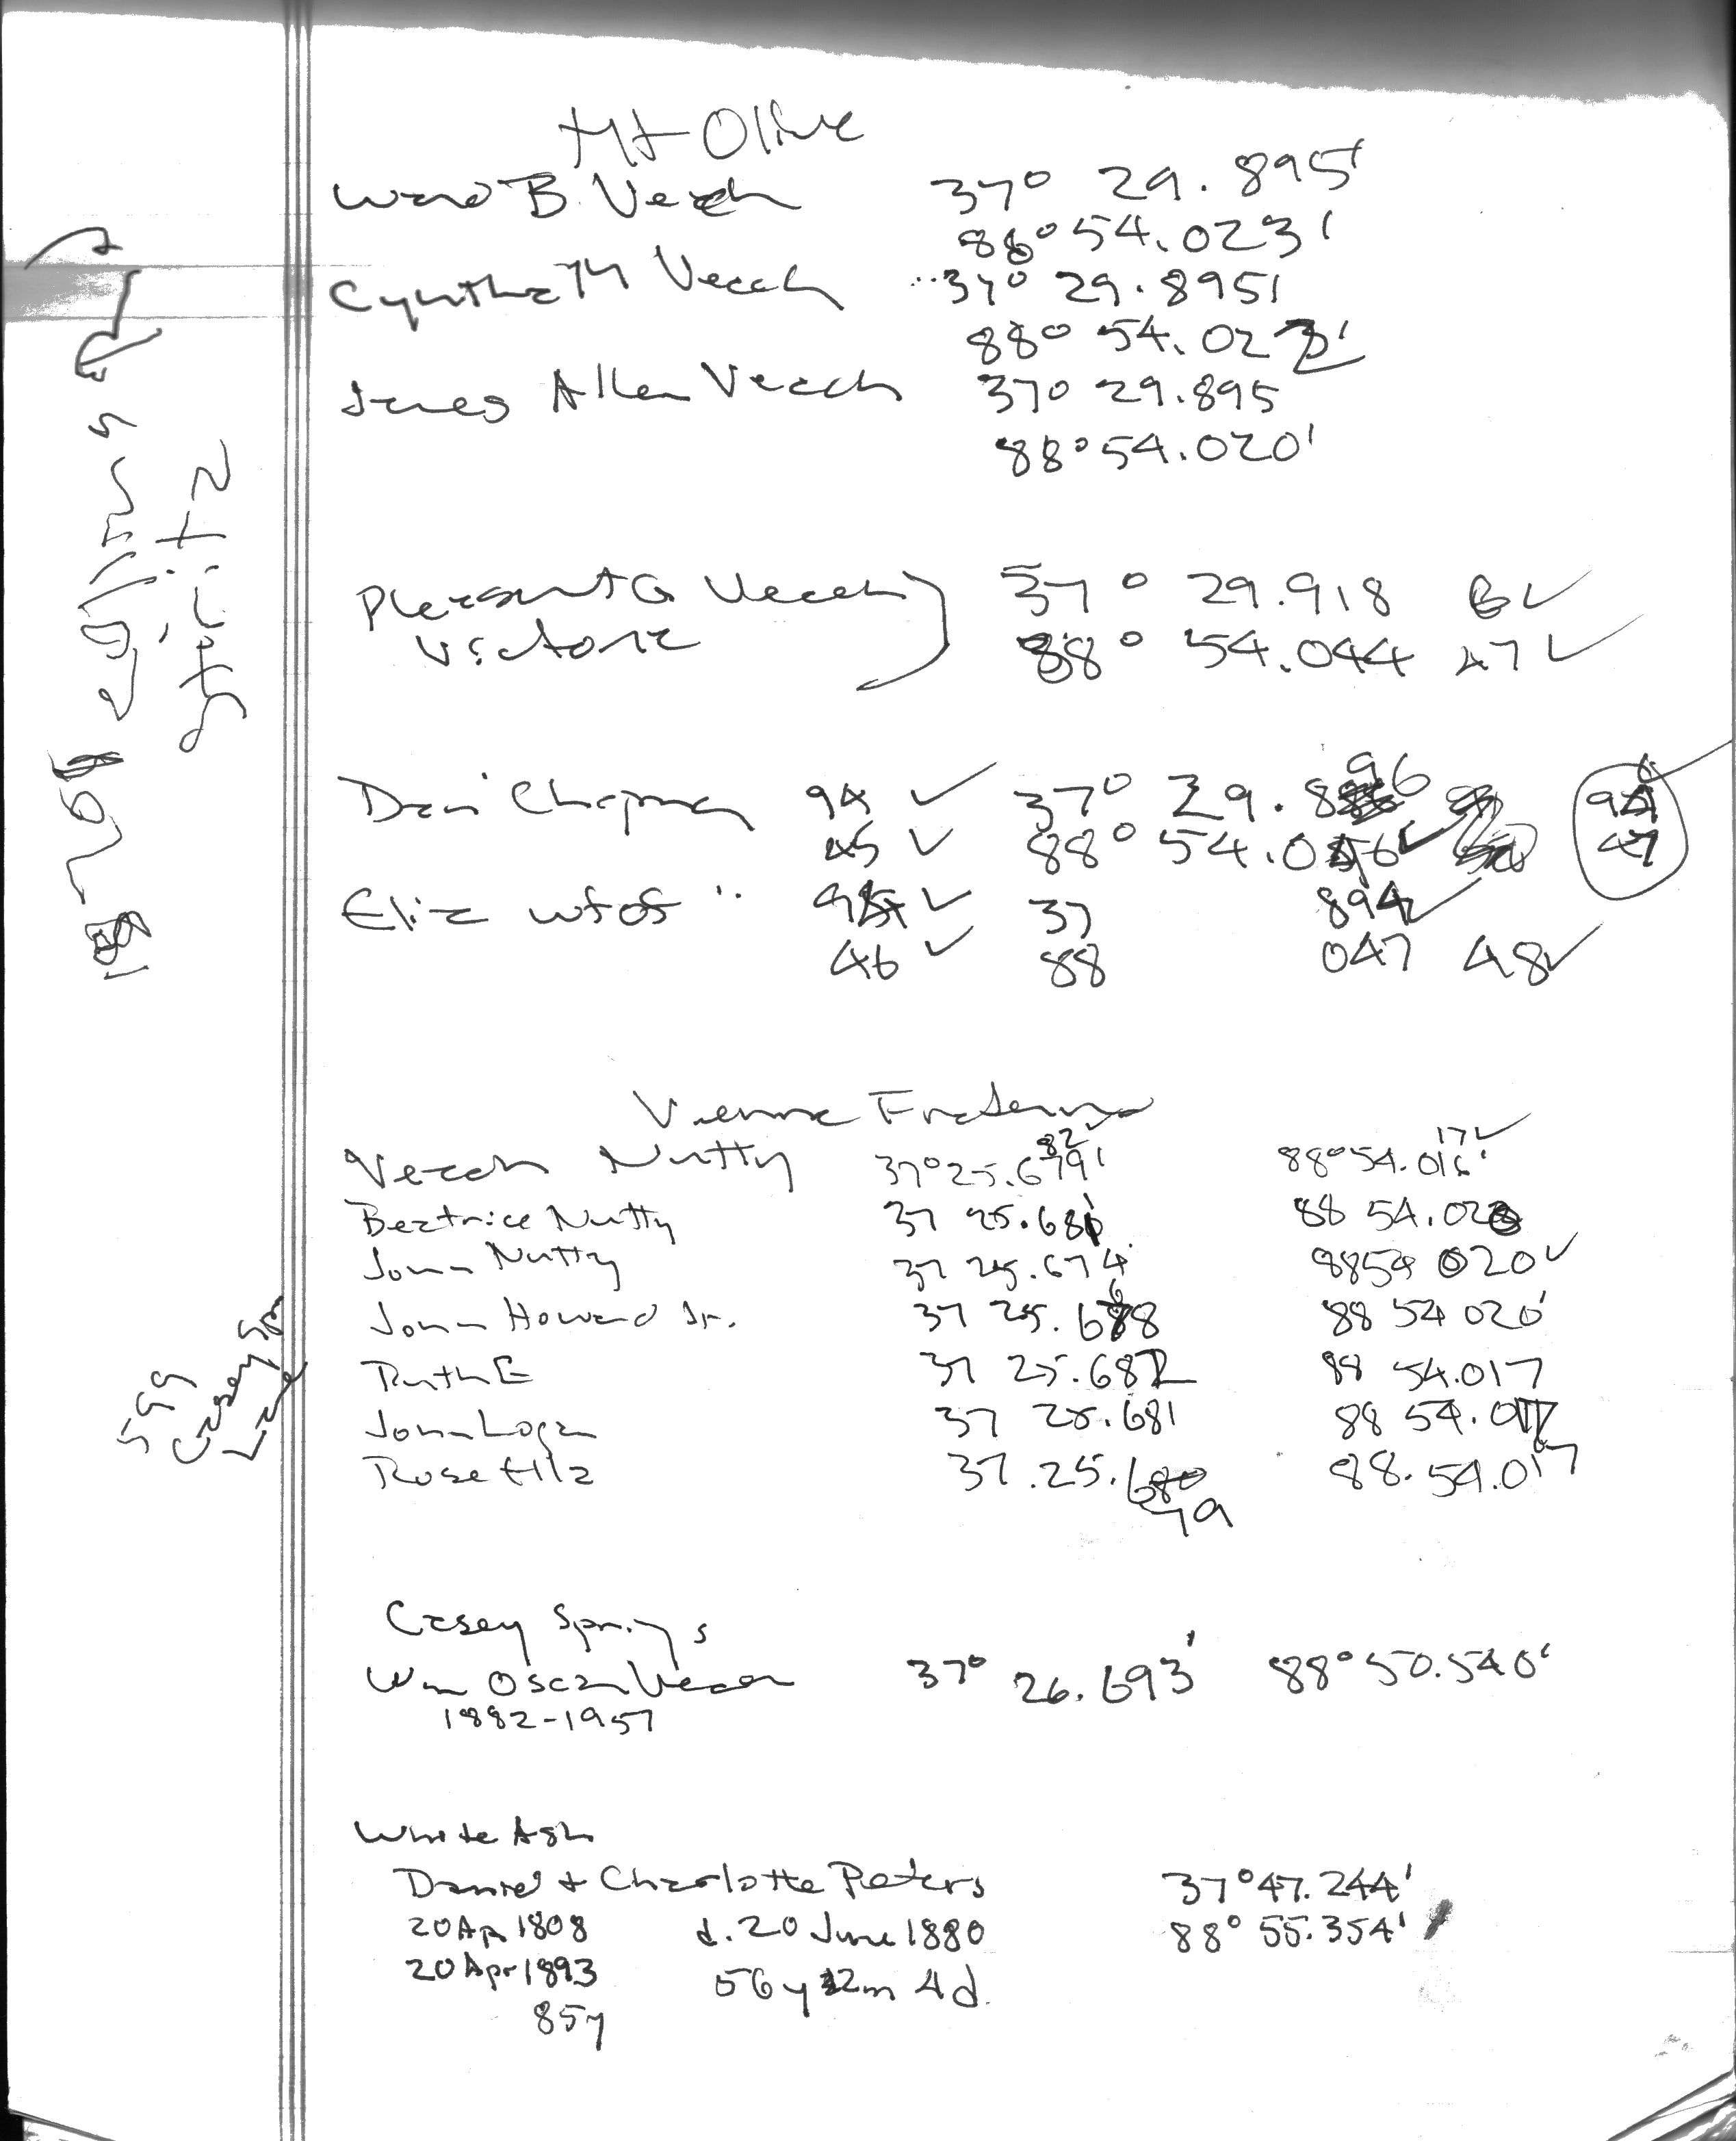 Mt Olive
Ward B. Veach 37° 29.895'
88° 54.023'
Cyntha M Veach 37° 29.895'
88° 54.023'
James Allen Veach 37° 29.895
88° 54.020'
Pleasant G Veach 37° 29.918 6 ✓
Victoria 88° 54.044 47 ✓
Dan'l Chapman 94 ✓ 37° 29.896 94
45 ✓ 88° 54.046 ✓ 47
Eliza wf of " ✓ 37 894 ✓
46 ✓ 88 047 48 ✓
Vienna Fraternal
82 ✓ 17 ✓
Veach Nutty 37° 25.679' 88° 54.016'
Beatrice Nutty 37 25.681 88 54.020
John Nutty 37 25.674 88 54 020 ✓
John Howard Jr. 37 25.688 88 54 020'
Ruth E 37 25.682 88 54.017
John Logan 37 25.681 88 54.017
Rose Ella 37.25.680 88.54.017
79
Casey Springs
Wm Oscar Veach 37° 26.693' 88° 50.540'
1882-1957
White Ash
Daniel + Charlotte Peters 37° 47.244'
20 Ap 1808 d. 20 June 1880 88° 55.354'
20 Apr 1893 56y 2m 4d.
85y
599
Casey Spr
Lane